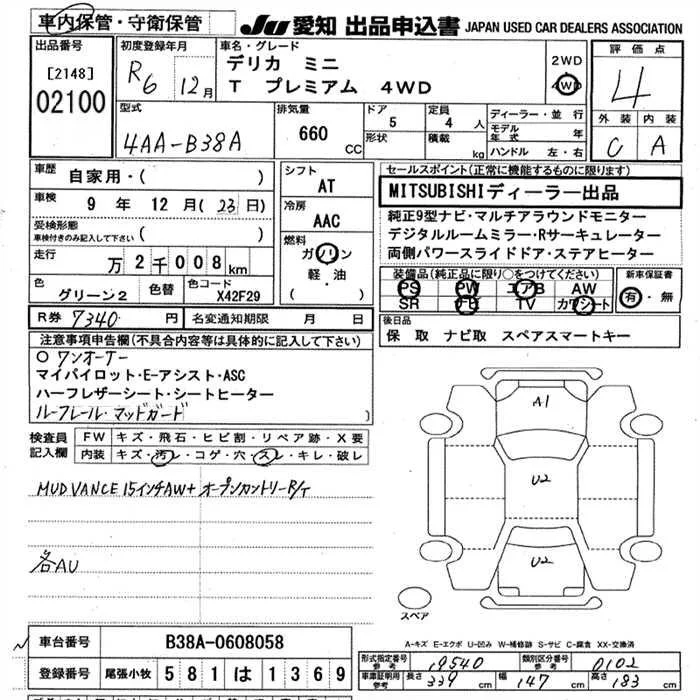 車内保管・守衛保管
JU 愛知 出品申込書 JAPAN USED CAR DEALERS ASSOCIATION
出品番号
[2148]
02100
初度登録年月
R6 12月
車名・グレード
デリカ ミニ
T プレミアム 4WD
2WD
4WD
評価点
4
外装 内装
C A
型式
4AA-B38A
排気量
660 CC
ドア 5
形状
定員 4 人
積載 kg
ディーラー・並行
モデル年式 年
ハンドル 左・右
車歴
自家用・( )
車検
9年 12月(23日)
受検形態
車検付きのみ記入して下さい ( )
走行
万2千008km
色
グリーン2
色替
色コード
X42F29
シフト
AT
冷房
AAC
燃料
ガソリン
軽・油
(・ )
セールスポイント(正常に機能するものに限ります)
MITSUBISHIディーラー出品
純正9型ナビ・マルチアラウンドモニター
デジタルルームミラー・Rサーキュレーター
両側パワースライドドア・ステアヒーター
装備品(純正品に限り○をつけてください)
PS PW エアB AW
SR ナビ TV カワシート
新車保証書
有・無
R券 7340 円 名変通知期限 月 日
後日品
保 取 ナビ取 スペアスマートキー
注意事項申告欄(不具合内容等は具体的に記入して下さい)
○ワンオーナー
マイパイロット・E-アシスト・ASC
ハーフレザーシート・シートヒーター
ルーフレール・マッドガード )
検査員記入欄
FW キズ・飛石・ヒビ割・リペア跡・X要
内装 キズ・汚レ・コゲ・穴・スレ・キレ・破レ
MUD VANCE 15インチAW+オープンカントリーR/T
各AU
A1
U2
U2
スペア
A-キズ E-エクボ U-凹み W-補修跡 S-サビ C-腐食 XX-交換済
車台番号 B38A-0608058
登録番号 尾張小牧 581 は 1369
形式指定番号 参考 19540 類別区分番号 参考 0102
車庫証明用 参考 長さ 339 cm 幅 147 cm 高さ 183 cm